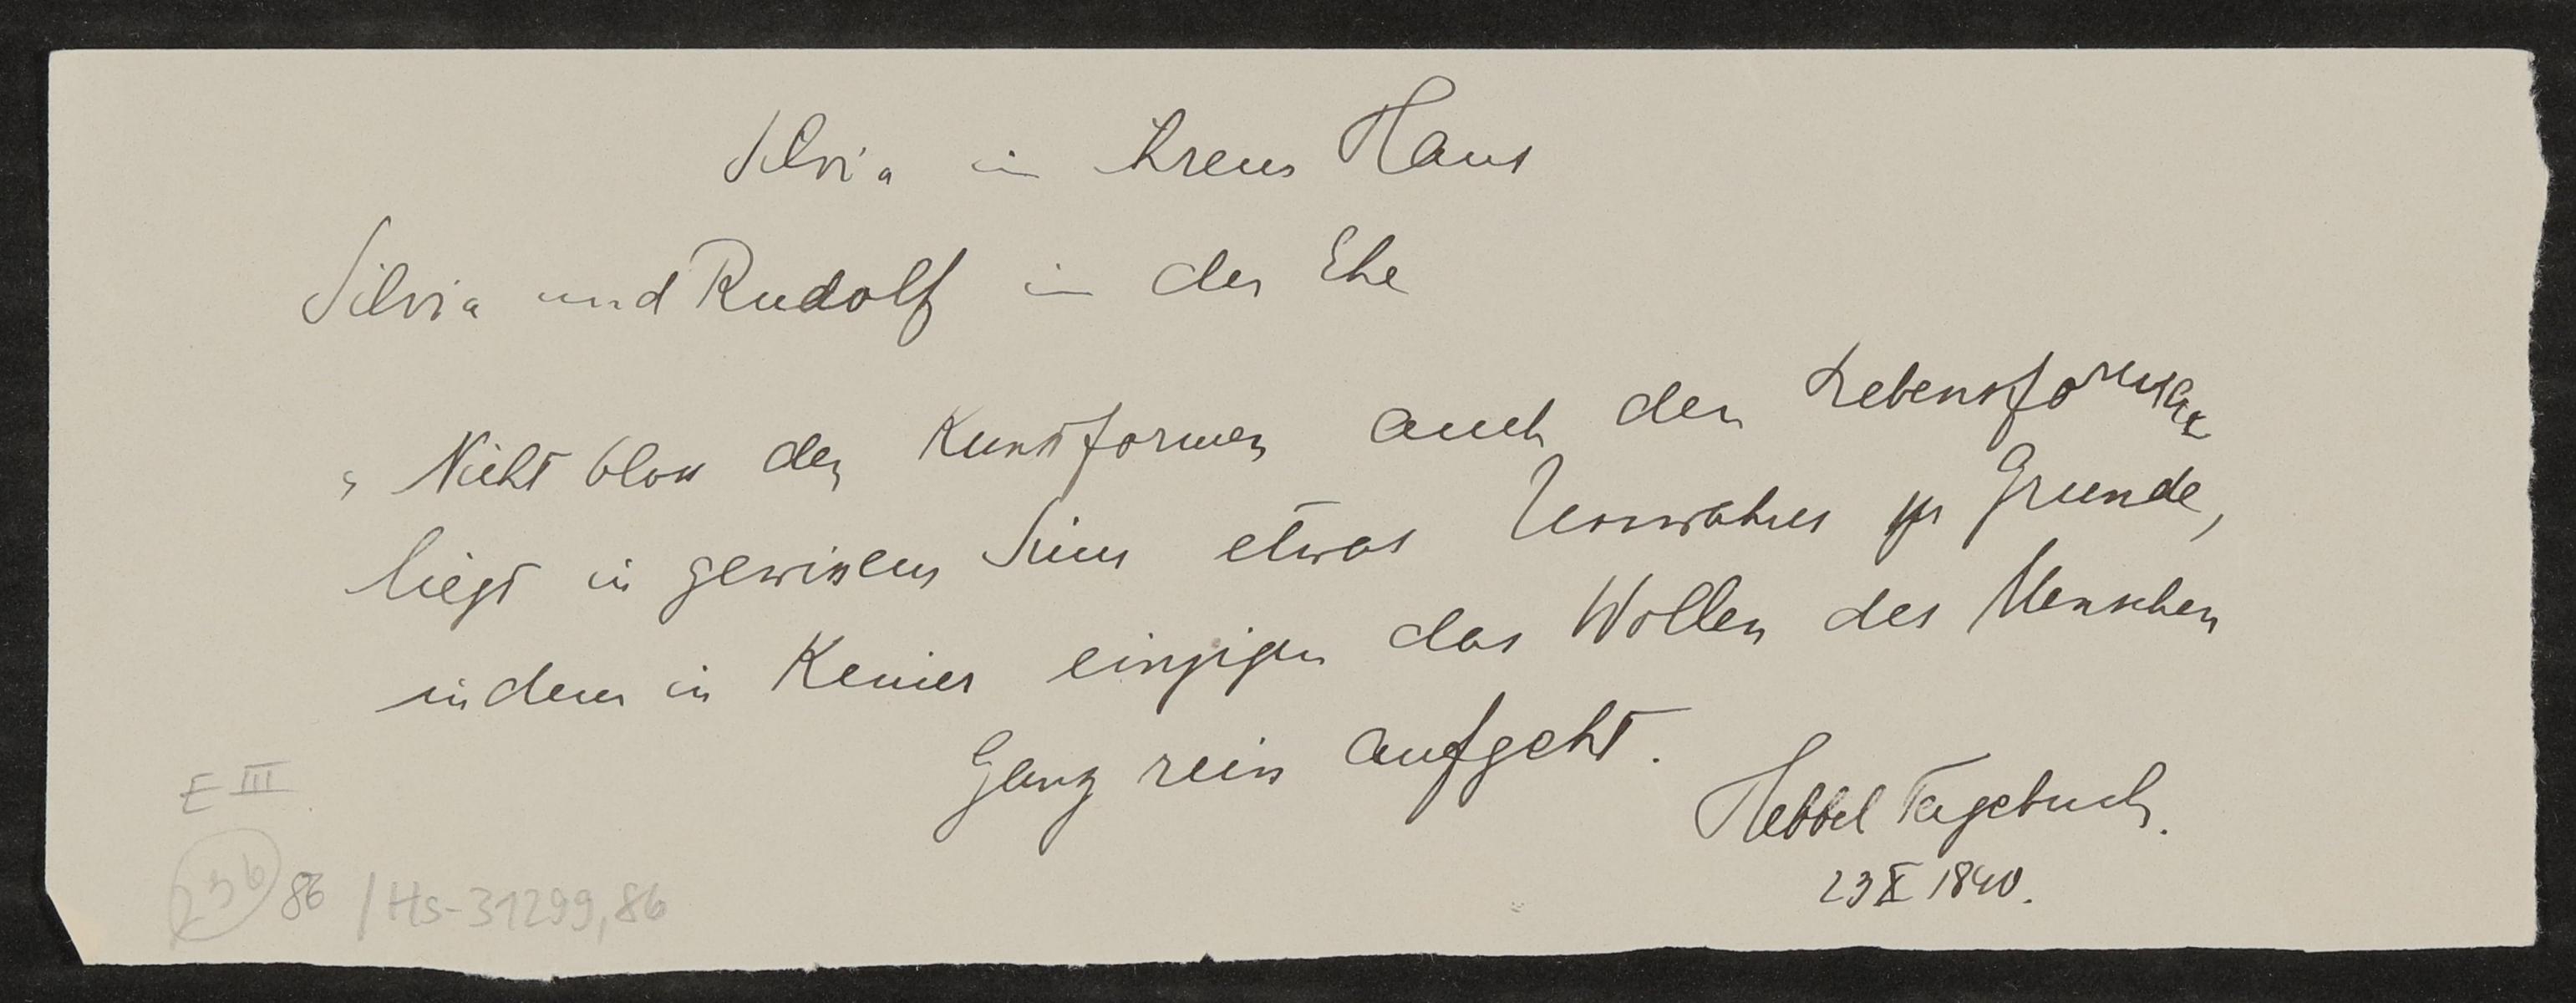 Silvia in ihrem Haus
Silvia und Rudolf in der Ehe
„ Nicht bloss den Kunstformen auch den Lebensformen
liegt in gewissem Sinn etwas Unwahres zu Grunde,
indem in keiner einzigen das Wollen des Menschen
Ganz rein aufgeht.
Hebbel Tagebuch.
23 X 1840.
E III
236 86 / Hs-31299,86